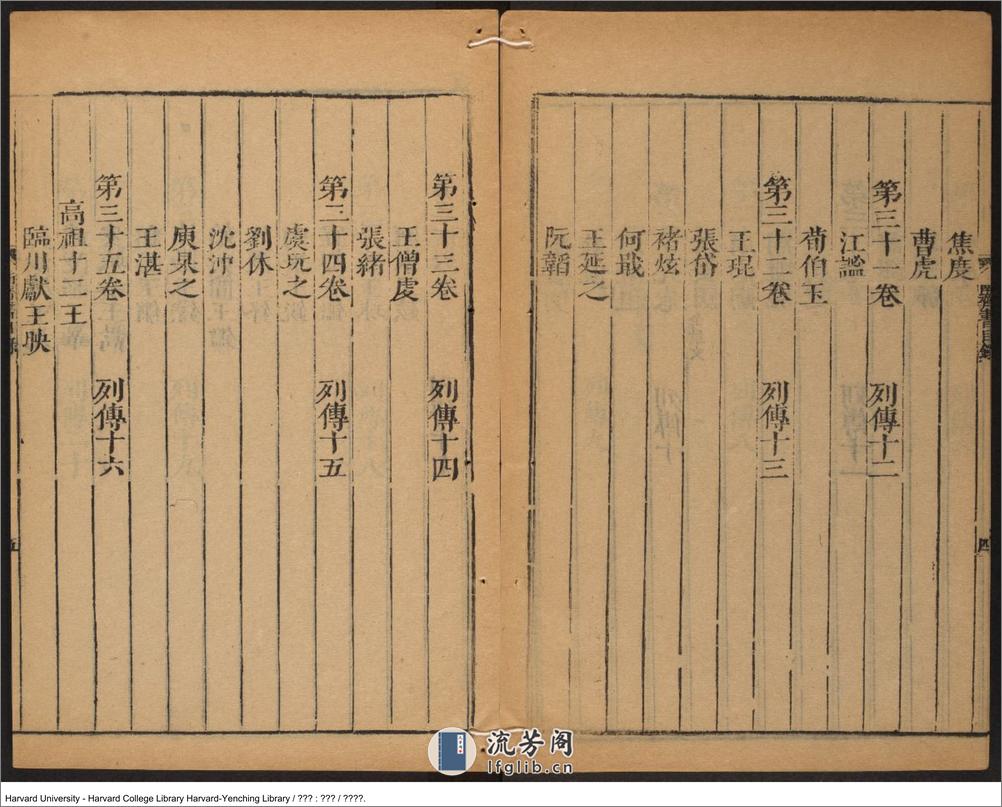 焦度
曹虎
第三十一卷　列傳十二
江謐
荀伯玉
第三十二卷　列傳十三
王琨
張岱
褚炫
何戢
王延之
阮韜
四
第三十三卷　列傳十四
王僧虔
張緒
第三十四卷　列傳十五
虞玩之
劉休
沈沖
庾杲之
王諶
第三十五卷　列傳十六
高祖十二王
臨川獻王映
五
流芳阁
lfglib.cn
Harvard University - Harvard College Library Harvard-Yenching Library / ??? : ??? / ????.